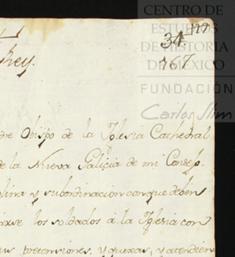 CENTRO DE
ESTUDIOS
DE HISTORIA
DE MÉXICO
FUNDACIÓN
Carlos Slim
34
167
Rey.
Obispo de la Iglesia Cathedral
de la Nueva Galicia de mi Consejo.
y subordinacion conque deben
los soldados á la Iglesia con
pretenciones, y quexas, y atendien